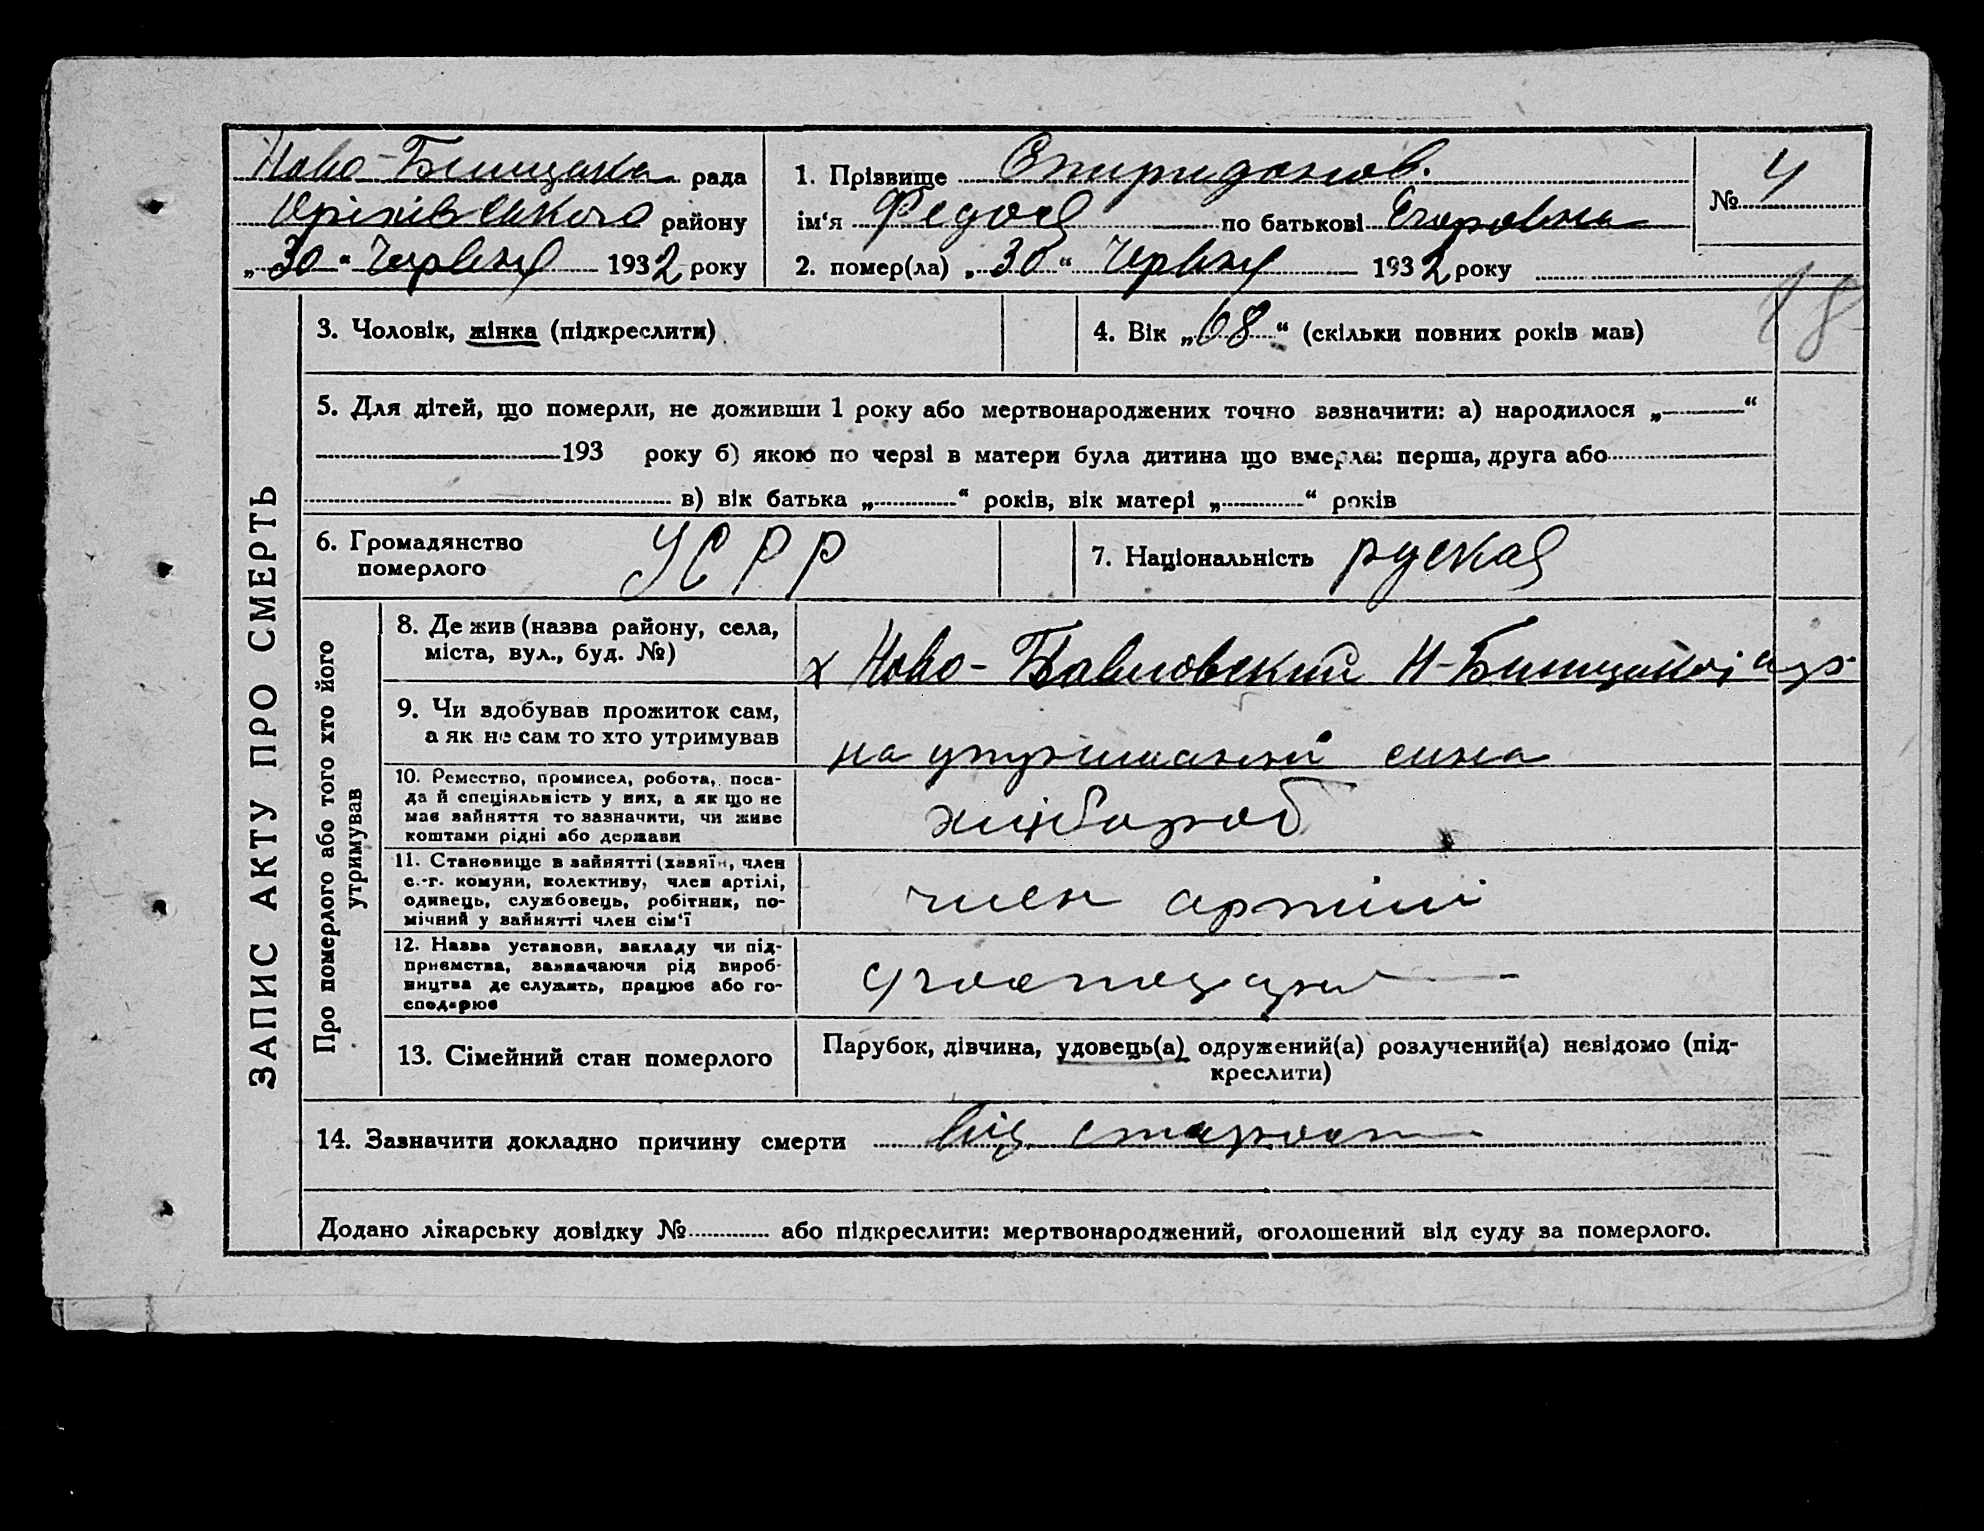 ЗАПИС АКТУ ПРО СМЕРТЬ
рада
району
„30“ Червня 1932 року
1. Прізвище Спиридонов.
ім‘я Федос по батькові Егоровна
№ 4
2. помер(ла) „30“ Червня 1932 року
3. Чоловік, жінка (підкреслити)
4. Вік „68“ (скільки повних років мав)
5. Для дітей, що померли, не доживши 1 року або мертвонароджених точно зазначити: а) народилося „ “
193 року б) якою по черзі в матери була дитина що вмерла: перша, друга або
в) вік батька „ “ років, вік матері „ “ років
6. Громадянство
померлого
УСРР
7. Національність руская
Про померлого або того хто його
утримував
8. Де жив (назва району, села,
міста, вул., буд. №)
х Ново-Павловский
9. Чи здобував прожиток сам,
а як не сам то хто утримував
на утриманні сина
10. Ремество, промисел, робота, поса-
да й спеціяльність у них, а як що не
має зайняття то зазначити, чи живе
коштами рідні або держави
хлібороб
11. Становище в зайнятті (хазяїн, член
с.-г. комуни, колективу, член артілі,
одинець, службовець, робітник, по-
мічний у зайнятті член сім‘ї
член артілі
12. Назва установи, закладу чи під-
приємства, зазначаючи рід вироб-
ництва де служить, працює або го-
сподарює
13. Сімейний стан померлого
Парубок, дівчина, удовець(а) одружений(а) розлучений(а) невідомо (під-
креслити)
14. Зазначити докладно причину смерти від старост
Додано лікарську довідку № або підкреслити: мертвонароджений, оголошений від суду за померлого.